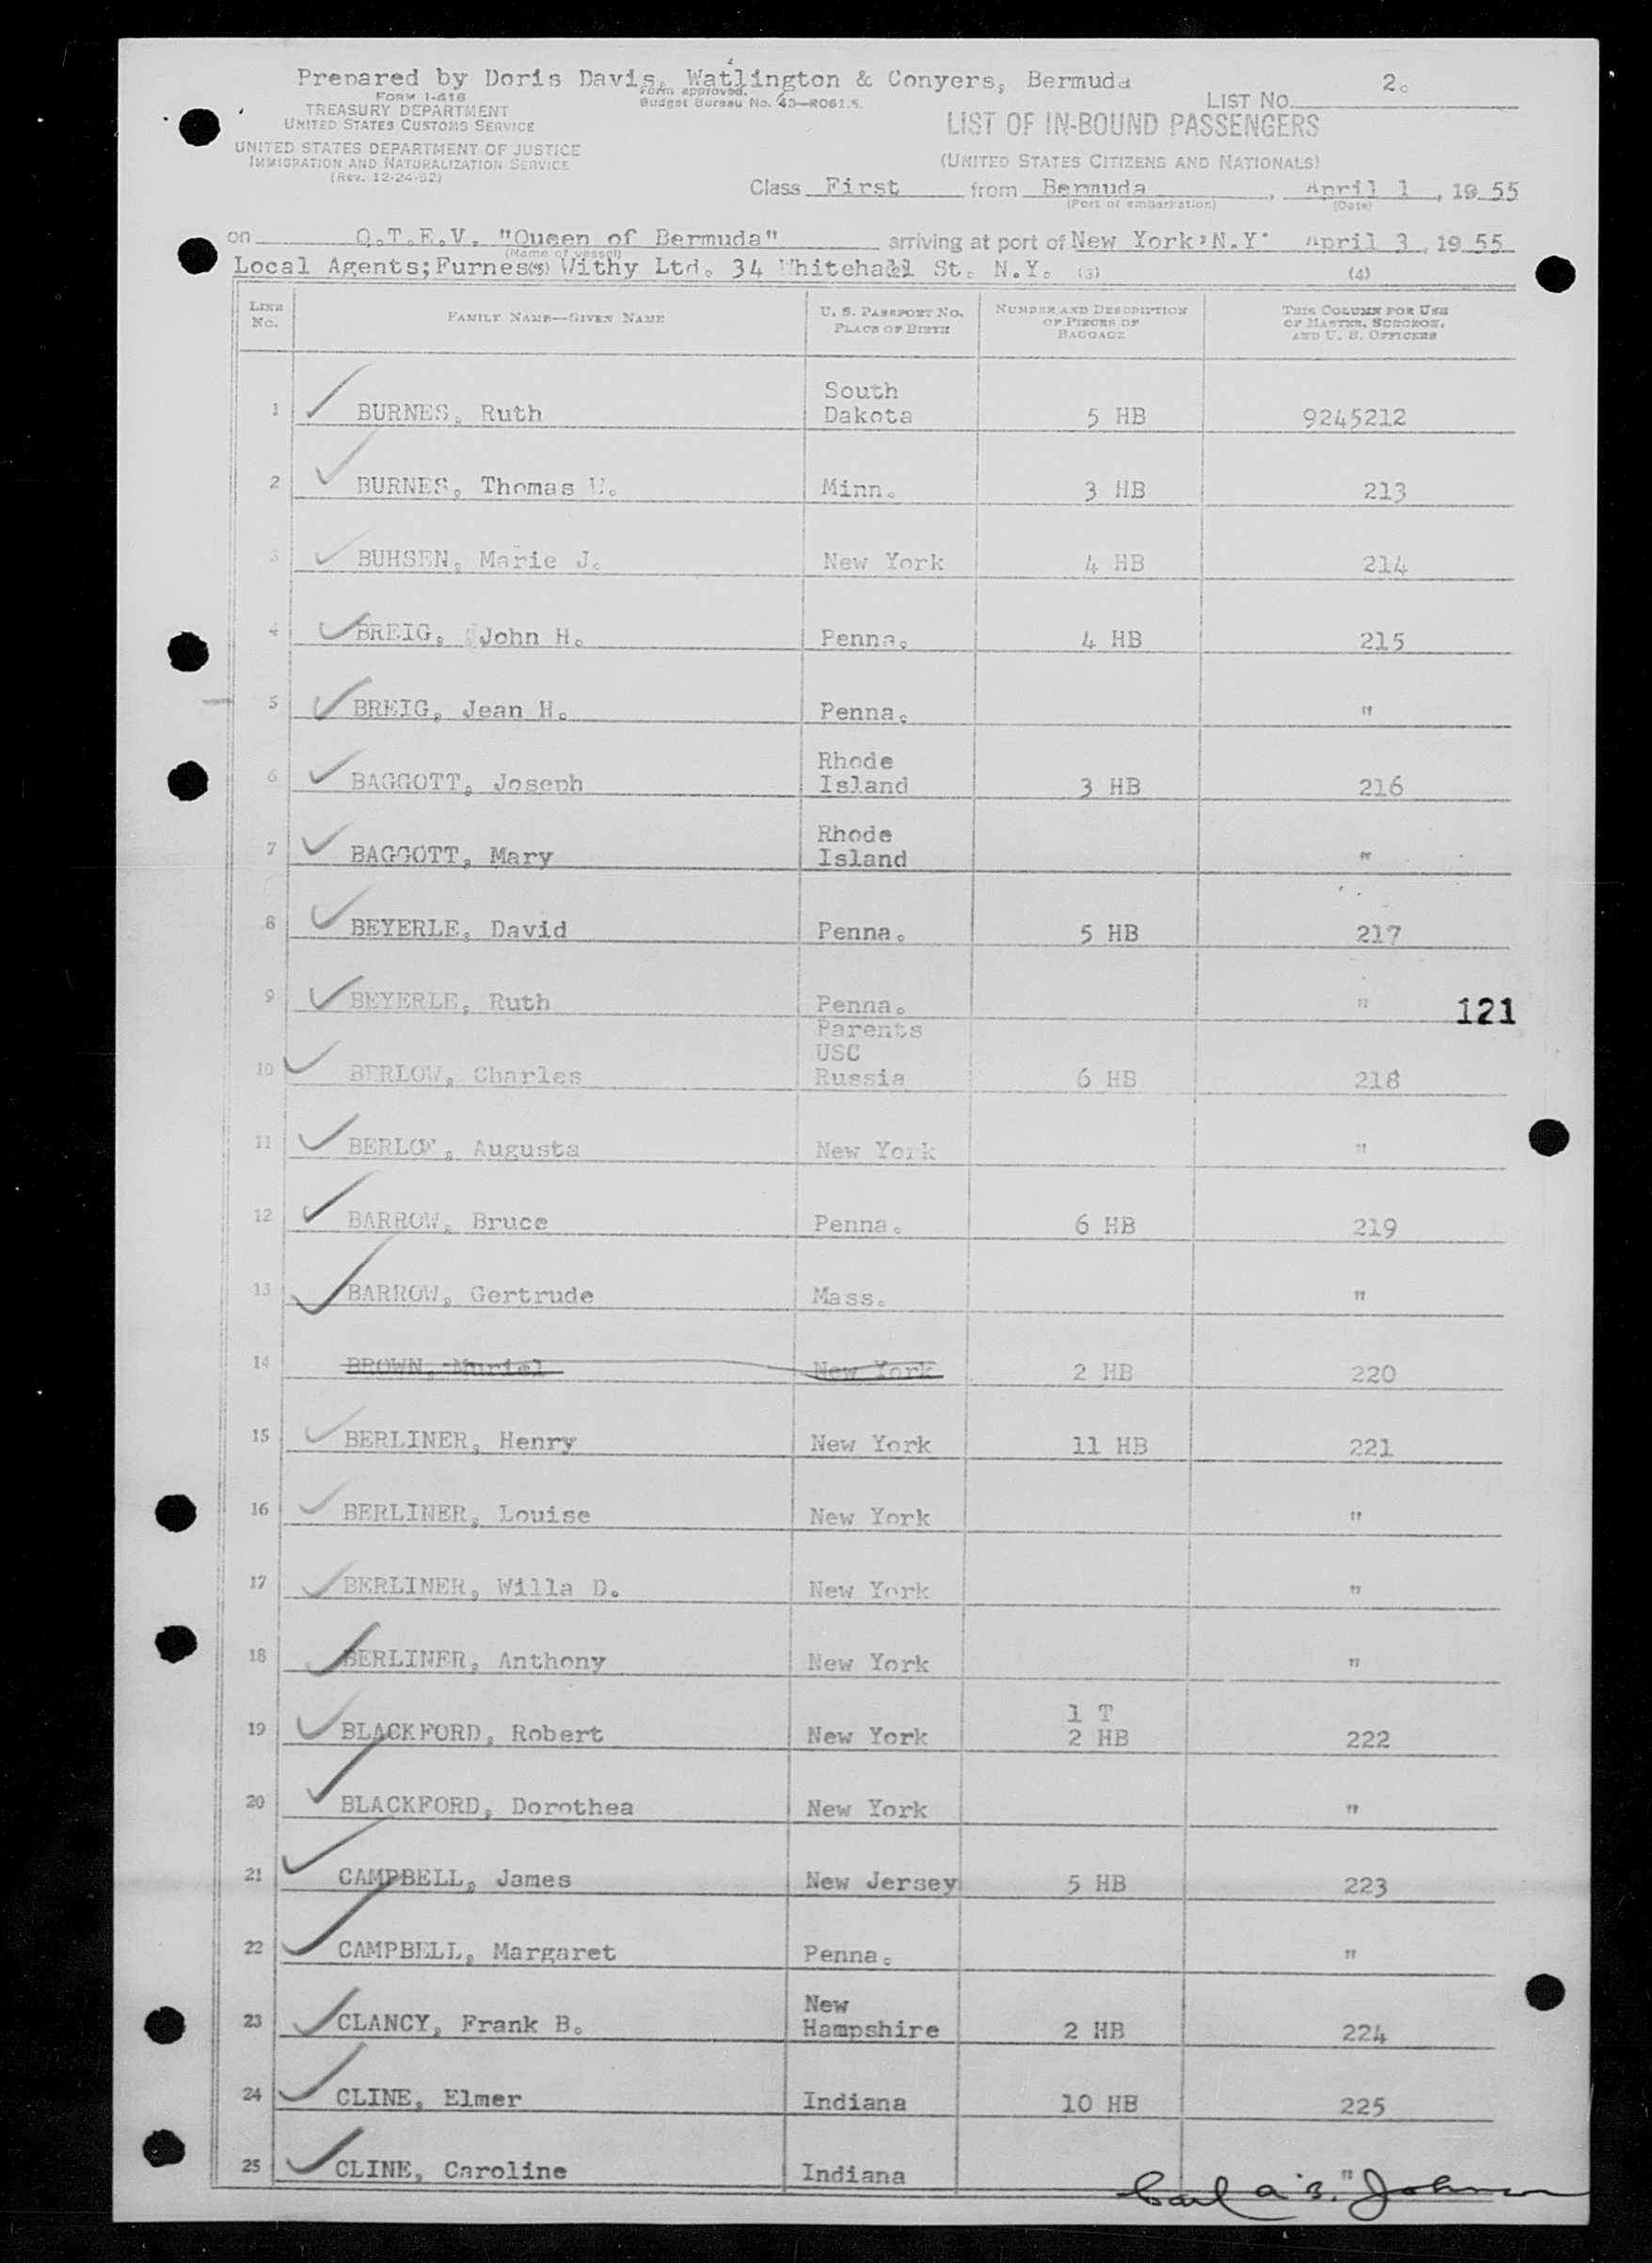 Prepared by Doris Davis, Watlington & Conyers, Bermuda 2.
FORM I-416 Form approved. LIST NO.
TREASURY DEPARTMENT Budget Bureau No. 43—R061.5.
UNITED STATES CUSTOMS SERVICE LIST OF IN-BOUND PASSENGERS
UNITED STATES DEPARTMENT OF JUSTICE
IMMIGRATION AND NATURALIZATION SERVICE (UNITED STATES CITIZENS AND NATIONALS)
(Rev. 12-24-52)
Class First from Bermuda, April 1, 1955
(Port of embarkation) (Date)
on Q.T.E.V. "Queen of Bermuda" arriving at port of New York, N.Y. April 3, 1955
(Name of vessel)
Local Agents; Furness Withy Ltd. 34 Whitehall St. N.Y. (3) (4)
LINE No. FAMILY NAME—GIVEN NAME U. S. PASSPORT NO. PLACE OF BIRTH NUMBER AND DESCRIPTION OF PIECES OF BAGGAGE THIS COLUMN FOR USE OF MASTER, SURGEON, AND U. S. OFFICERS
1 BURNES, Ruth South Dakota 5 HB 9245212
2 BURNES, Thomas 3 HB Minn. 213
3 BUHSEN, Marie J. New York 4 HB 214
4 BREIG, John H. Penna. 4 HB 215
5 BREIG, Jean H. Penna. "
6 BAGGOTT, Joseph Rhode Island 3 HB 216
7 BAGGOTT, Mary Rhode Island "
8 BEYERLE, David Penna. 5 HB 217
9 BEYERLE, Ruth Penna. " 121
10 BERLOW, Charles Parents USC Russia 6 HB 218
11 BERLOW, Augusta New York "
12 BARROW, Bruce Penna. 6 HB 219
13 BARROW, Gertrude Mass. "
14 BROWN, Muriel New York 2 HB 220
15 BERLINER, Henry New York 11 HB 221
16 BERLINER, Louise New York "
17 BERLINER, Willa D. New York "
18 BERLINER, Anthony New York "
19 BLACKFORD, Robert New York 1 T 2 HB 222
20 BLACKFORD, Dorothea New York "
21 CAMPBELL, James New Jersey 5 HB 223
22 CAMPBELL, Margaret Penna. "
23 CLANCY, Frank B. New Hampshire 2 HB 224
24 CLINE, Elmer Indiana 10 HB 225
25 CLINE, Caroline Indiana "